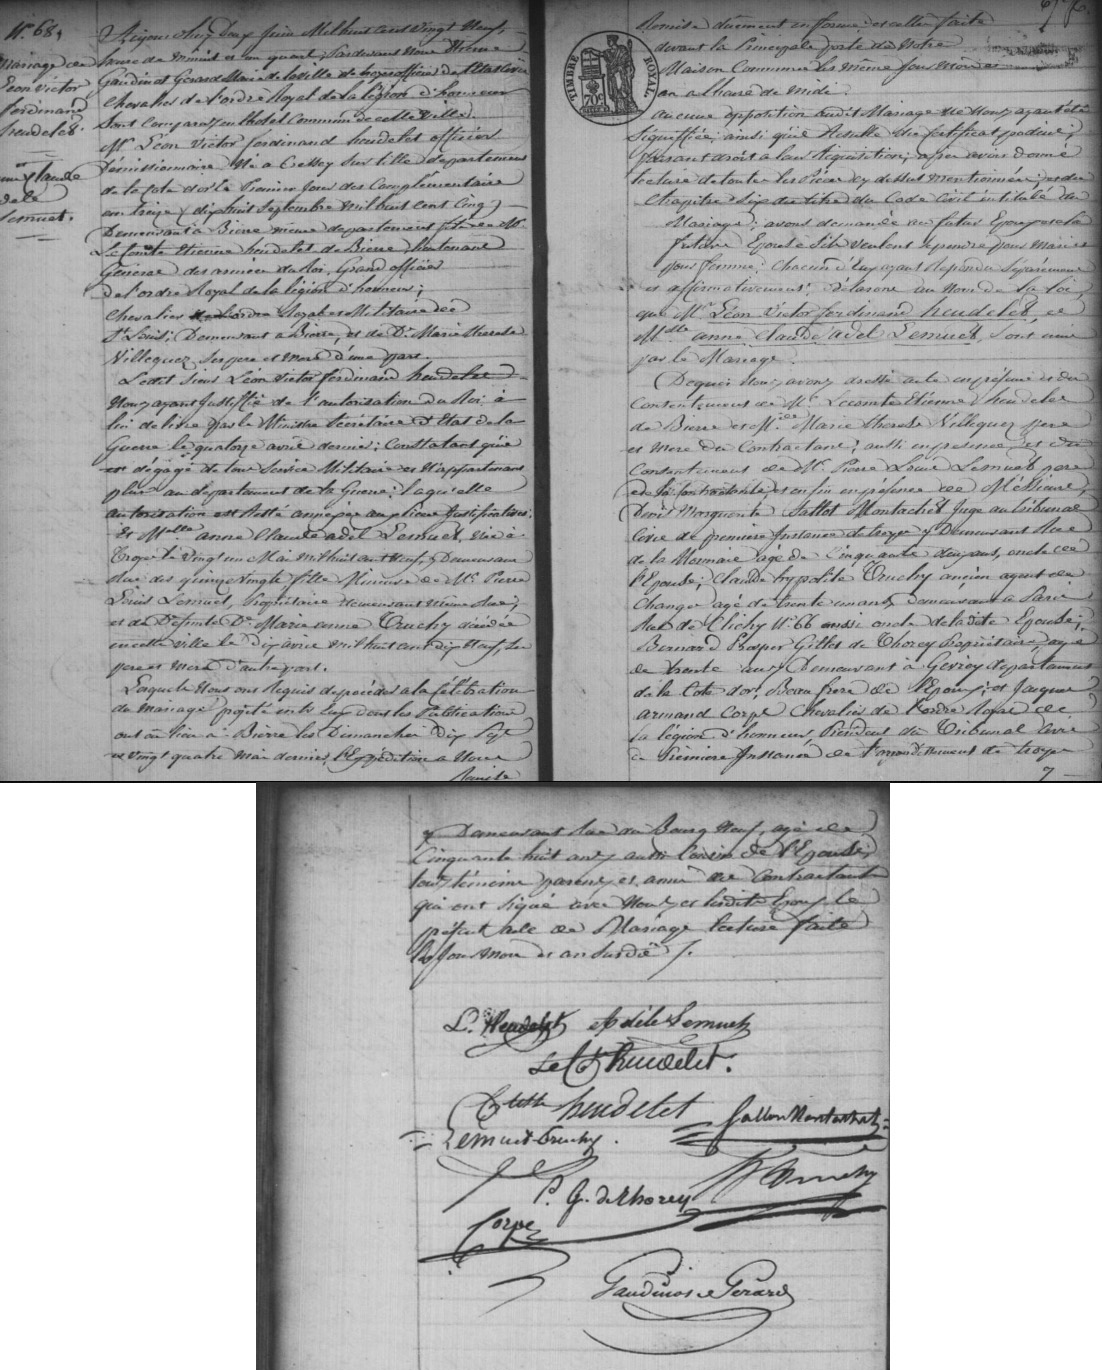 N.º 68.
Mariage de
Léon Victor
ferdinand
heudelet
Claude
adele
Lemuet.
Aujourd'huy Deux Juin Mil huit cent vingt Neuf,
heure de minuit et un quart, Pardevant Nous Etienne
Gaudinot Gerard Maire de la Ville de troyes officier de l'Etat Civil
Chevalier de l'ordre Royal de la légion d'honneur
Sont Comparus en l'hotel Commun de cette Ville
Mr. Léon Victor ferdinand heudelet officier
Démissionnaire Né a Cessey sur tille departement
de la Cote d'or le Premier Jour des Complémentaire
an treize (dix huit Septembre Mil huit cent Cinq)
Demeurant a Bierre meme departement fils de Mr.
Le Comte Etienne heudelet de Bierre lieutenant
General des armées du Roi, Grand officier
de l'ordre Royal de la légion d'honneur;
Chevalier de l'ordre Royal et Militaire de
St. Louis; Demeurant a Bierre, et de De. Marie therese
Villequez, Ses pere et Mere d'une part.
Ledit Sieur Léon Victor ferdinand heudelet
Nous ayant Justifié de l'autorisation du Roi à
lui délivré par le Ministre Secrétaire d'Etat de la
Guerre le quatorze avril dernier; Constatant qu'il
est dégagé de tout Service Militaire et N'appartenant
plus au departement de la Guerre; laquelle
autorisation est Resté annexée aux pieces Justificatives.
Et Melle. anne Claude adel Lemuet, Née à
Troyes le vingt un Mai Mil huit cent Neuf, y Demeurant
Rue des quinze vingts fille Mineure de Mr. Pierre
Louis Lemuet, Propriétaire demeurant même Rue,
et de Défunte De. Marie anne Truchy décédée
en cette ville le dix avril mil huit cent dix Neuf, Ses
pere et Mere d'autre part.
Laquels Nous ont Requis de procéder a la Célébration
du Mariage projeté entre Eux dont les Publications
ont eu lieu a Bierre les Dimanches Dix Sept
et Vingt quatre Mai dernier, l'Expédition a Nous
Remise
Remise duement en forme et celles faite
devant la Principale porte de Notre
Maison Commune les même Jour Mois et
an a heure de Midi.
aucune opposition audit Mariage Ne Nous ayant été
Signiffiée; ainsi qu'il Résulte
faisant droit a leur Réquisition; apres avoir donné
lecture de toutes les Pièces cy dessus mentionnées et du
Chapitre Six du titre du Code Civil intitulé du
Mariage; avons demandé au futur Epoux et a la
future Epouse s'ils veulent se prendre pour Mari et
pour femme; Chacun d'Eux ayant Répondu Séparément
et affirmativement; Déclarons au Nom de la Loi,
que Mr. Léon Victor ferdinand heudelet et
Melle anne Claude adel Lemuet, Sont unis
par le Mariage.
Dequoi Nous avons dressé acte en présence et du
Consentement de Mr. Lecomte Etienne heudelet
de Bierre et Me. Marie therese Villequez pere
et Mere du Contractant; aussi en présence et du
Consentement de Mr. Pierre Louis Lemuet pere
de la Contractante, et enfin en présence de Messieurs,
Marguerite Sallot Montachet Juge au tribunal
Civil de premiere Instance de troyes y Demeurant Rue
de la Monnaie agé de Cinquante deux ans, oncle de
l'Epouse; Claude hypolite Truchy ancien agent de
Change agé de trente ans, demeurant a Paris
Rue de Clichy No. 66 aussi oncle de ladite Epouse;
Bernard Prosper Gillet de Thorey Propriétaire, agé
de trente ans, Demeurant a Gevrey departement
de la Cote d'or, Beau frere de l'Epoux; et Jacques
armand Corps Chevalier de l'ordre Royal de
la légion d'honneur, Président du Tribunal Civil
de Premiere Instance de l'arrondissement de troyes
y
TIMBRE ROYAL.
70c
y Demeurant Rue du Bourg Neuf, agé de
Cinquante huit ans, aussi Cousin de l'Epouse,
tous témoins parens et amis des Contractants
qui ont Signé avec Nous, et lesdits Epoux le
présent acte de Mariage lecture faite
les Jour Mois et an Susdits.
L. Heudelet Adèle Lemuet
Le Cte heudelet.
heudelet Sallot Montachet
Lemuet-Truchy.
Truchy
P. G. de Thorey
Corps
Gaudinot Gerard